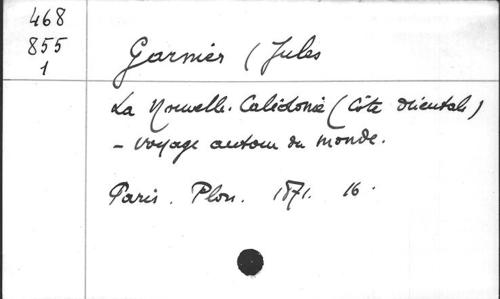 468
855
1
Garnier (Jules
La Nouvelle-Calédonie (Côte orientale)
- voyage autour du monde.
Paris. Plon. 1871. 16.